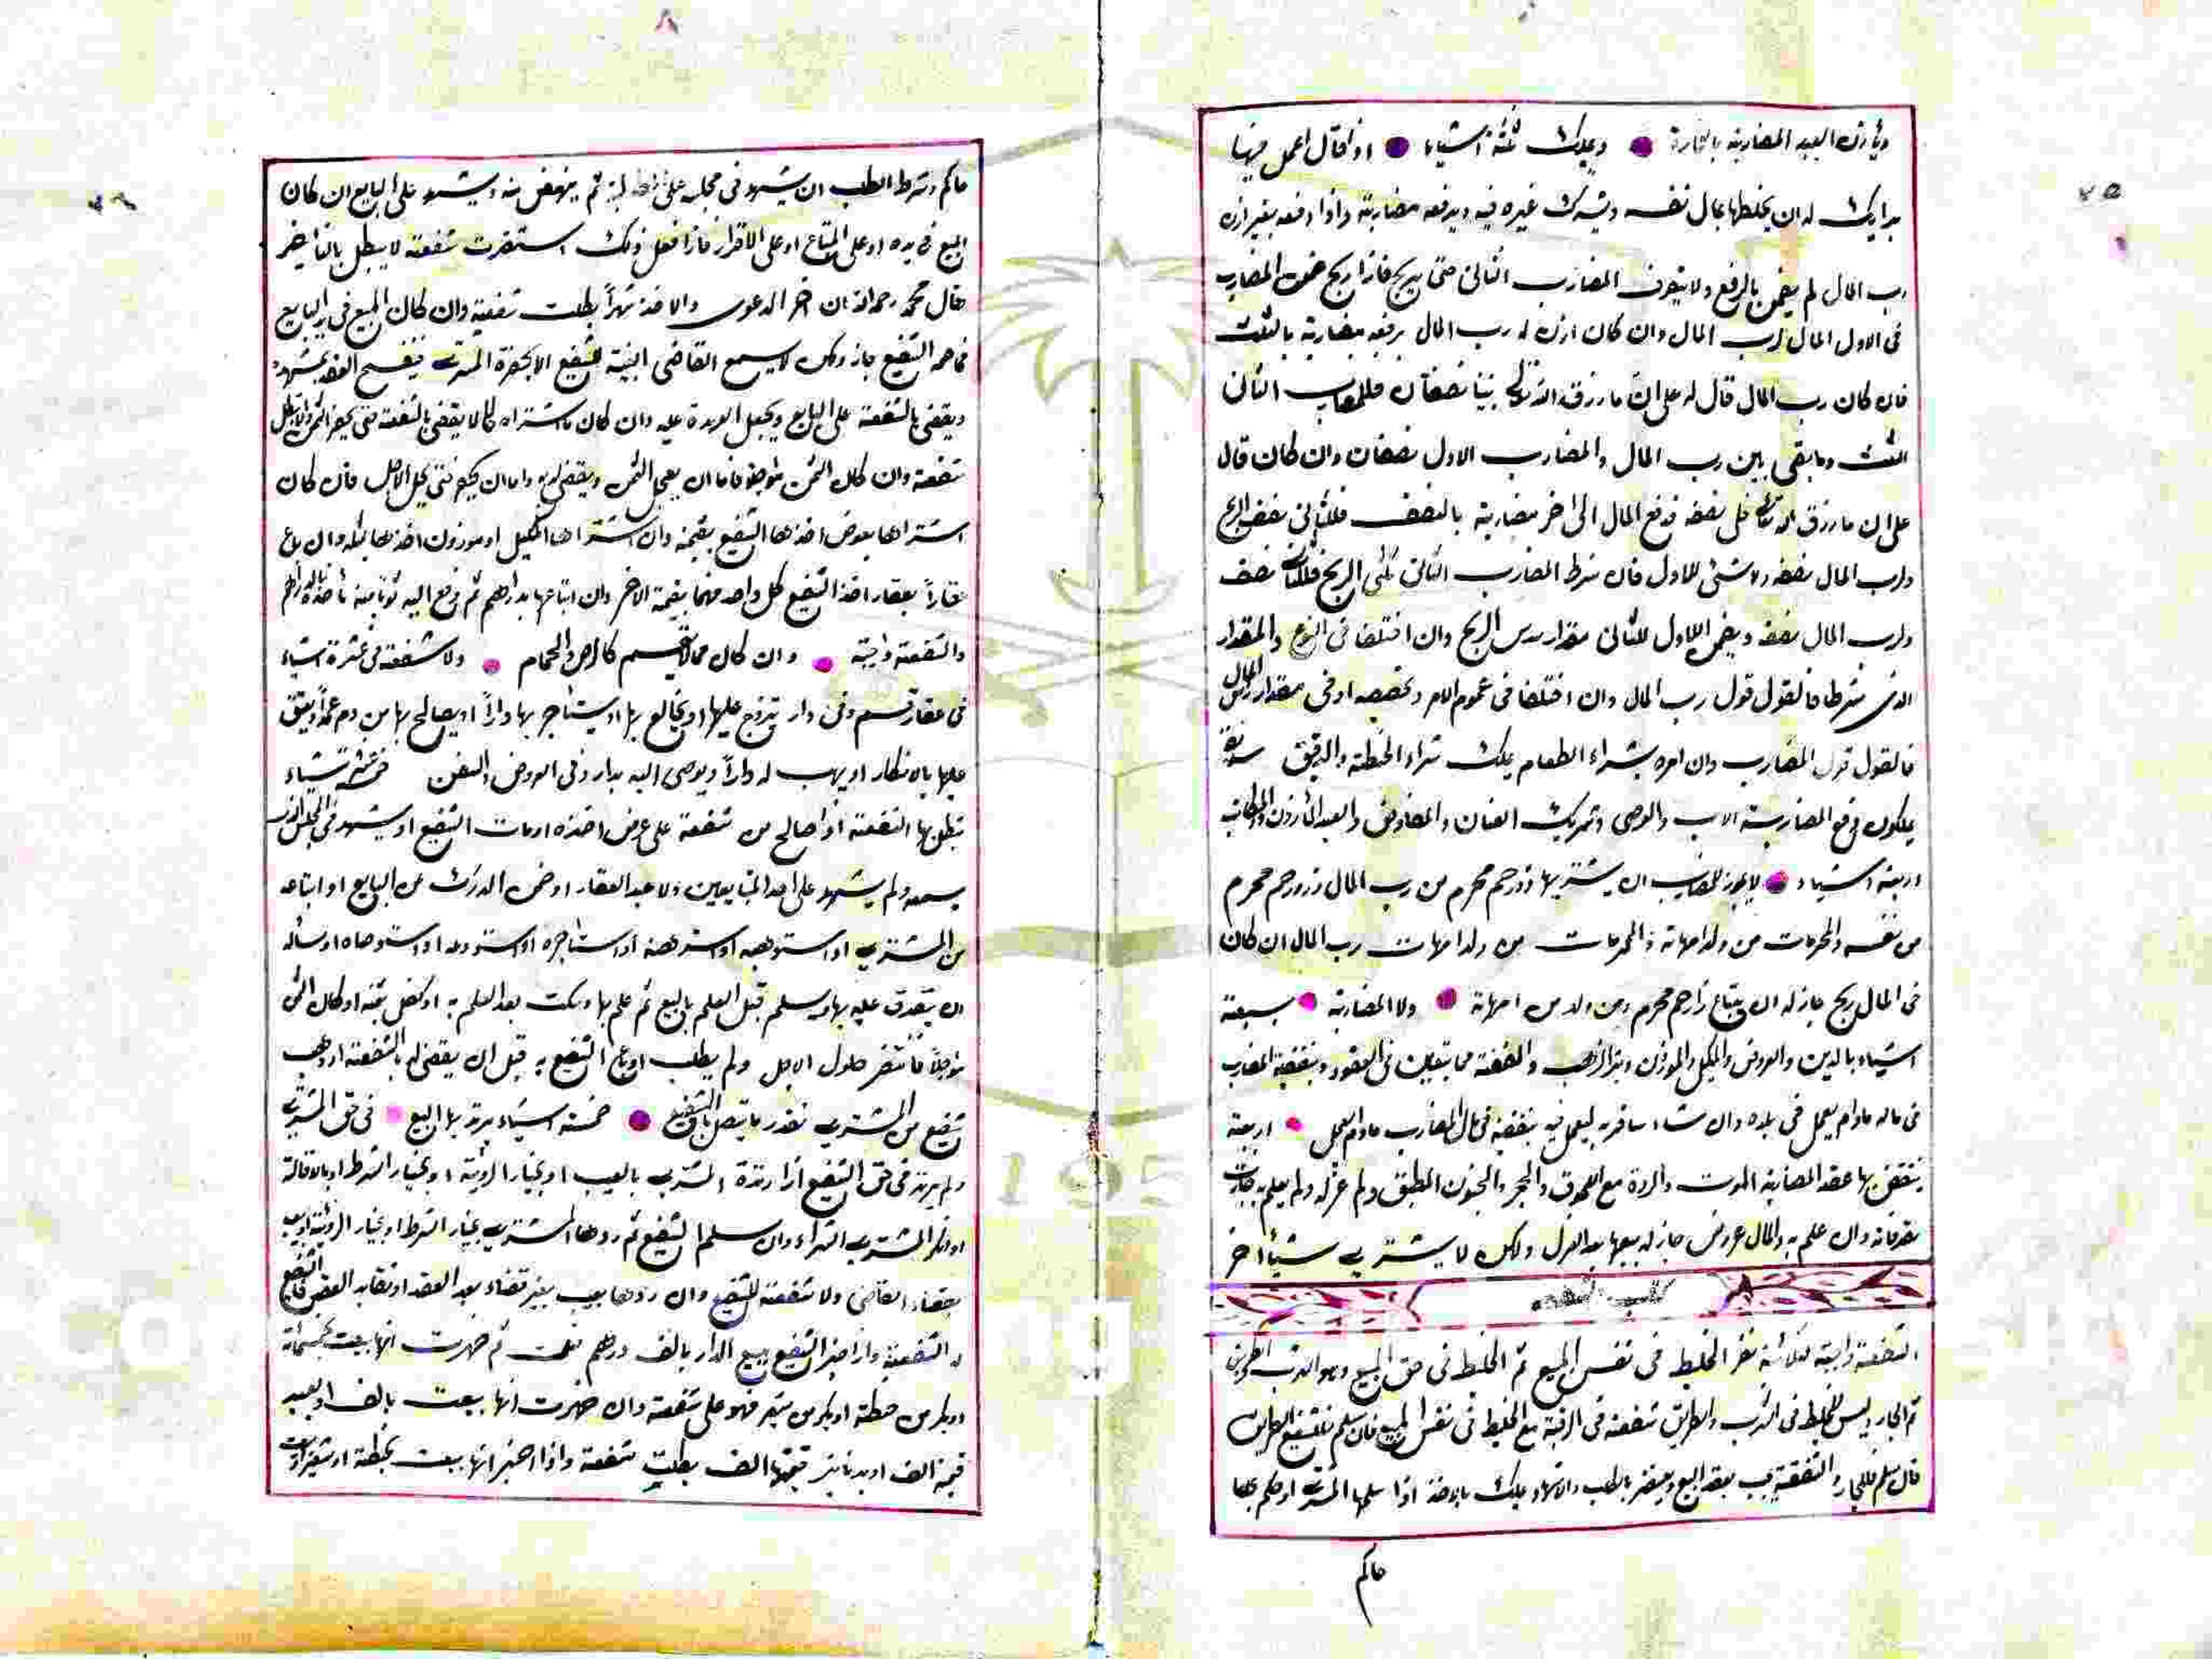 ويأذن العبد المضاربة بالتجارة ويملك ثلثة اشياء اذا قال اعمل فيها
برايك له ان يخلطها بمال نفسه ويشرك غيره فيه ويدفعه مضاربة واذا دفعه بغير اذن
رب المال لم يضمن بالدفع ولا بتصرف المضارب الثانى حتى يربح فاذا ربح ضمن المضارب
فى الاول المال لرب المال وان كان اذن له رب المال بدفعه مضاربة بالثلث
فان كان رب المال قال له على ان ما رزق الله تعالى بيننا نصفان فللمضارب الثانى
الثلث وما بقى بين رب المال والمضارب الاول نصفان وان كان قال
على ان ما رزق الله تعالى فلى نصفه فدفع المال الى اخر مضاربة بالنصف فللثانى نصف الربح
ولرب المال نصفه ولا شئ للاول فان شرط المضارب الثانى ثلثى الربح فللثانى نصف
ولرب المال نصفه ويضمن الاول للثانى مقدار سدس الربح وان اختلفا فى النوع والمقدار
الذى شرطا فالقول قول رب المال وان اختلفا فى عموم الامر وتخصيصه اوفى مقدار راس المال
فالقول قول المضارب وان امره بشراء الطعام يملك شراء الحنطة والدقيق
يملكون دفع المضاربة الاب والوصى وشريك العنان والمفاوض والعبد المأذون والمكاتب
اربعة اشياء لا يجوز للمضارب ان يشتريها ذو رحم محرم من رب المال وذو رحم محرم
من نفسه والمحرمات من ولد امهاته والمحرمات من ولد امهات رب المال ان كان
فى المال ربح جاز له ان يبتاع ذا رحم محرم ومن ولد من امهاته ولا المضاربة بسبعة
اشياء بالدين والعروض والمكيل والموزون وتبر الذهب والفضة مما يتعين فى العقود ونفقة المضارب
فى ماله مادام يعمل فى بلده وان شاء سافر به ليعمل فيه نفقته فى مال المضارب مادام يعمل اربعة
ينتقض بها عقد المضاربة الموت والردة مع اللحوق والحجر والجنون المطبق ولم عزله ولم يعلم به جازت
تصرفاته وان علم به والمال عروض جاز له بيعها بعد العزل ولكن لا يشترى شيئا اخر
كتاب الشفعة
الشفعة واجبة لثلاثة نفر الخليط فى نفس المبيع ثم الخليط فى حق المبيع وهو الشرب والطريق
ثم الجار وليس للخليط فى الشرب والطريق شفعة فى الرقبة مع الخليط فى نفس المبيع فان سلم فلشفيع الطريق
فان سلم فللجار والشفعة تجب بعقد البيع ويستقر بالطلب والاشهاد ويملك بالاخذ اذا سلمها المشترى او حكم بها
حاكم
حاكم وشرط الطلب ان يشهد فى مجلسه على ثم ينهض منه ويشهد على البايع ان كان
المبيع فى يده او على المبتاع او على الاقرار فاذا فعل ذلك استقرت شفعته لا يبطل بالتأخير
وقال محمد رحمه الله ان اخر الدعوى والاخذ شهراً بطلت شفعته وان كان المبيع فى يد البايع
فخاصمه الشفيع جاز ولكن لا يسمع القاضى البينة للشفيع الا بحضرة المشترى فيفسخ العقد بمشهده
ويقضى بالشفعة على البايع ويجعل العهدة عليه وان كان لا يقضى بالشفعة حتى يحضر الثمن
شفعته وان كان الثمن مؤجلا فاما ان يعجل الثمن ويقضى له واما ان يصبر حتى يحل الاجل فان كان
اشتراها بعوض اخذها الشفيع بقيمته وان اشتراها بمكيل او موزون اخذها بمثله وان باع
عقاراً بعقار اخذ الشفيع كل واحد منهما بقيمة الاخر وان ابتاعها بدراهم ثم دفع اليه ثوبا منه يأخذه بالدراهم
والشفعة واجبة وان كان مما لا يقسم كالرحى والحمام ولا شفعة فى عشرة اشياء
فى عقار قسم وفى دار يتزوج عليها او يخالع بها او يستأجر بها داراً او يصالح بها من دم عمد او يعتق
عليها بالانكار او يهب له داراً ويوصى اليه بدار وفى العروض والسفن اشياء
تبطل بها الشفعة اذا صالح من شفعته على عوض اخذه او مات الشفيع او يشهد فى المجلس الذى
يسمعه ولم يشهد على احد المتبايعين ولا عند العقار او ضمن الدرك عن البايع او ابتاعه
من المشترى او استوهبه او استرهنه او استأجره او استودعه او استوصاه او سأله
ان يتصدق عليه بها او سلم قبل العلم بالبيع ثم علم بها وسكت بعد العلم به او كفل بثمنه او كان الثمن
مؤجلا فانتظر حلول الاجل ولم يطلب او باع الشفيع به قبل ان يقضى له بالشفعة او وهب
شفيع من المشترى بقدر ما يتصل بالشفيع خمسة اشياء يرتد بها البيع فى حق المشترى
ولم يرتد فى حق الشفيع اذا رده المشترى بالعيب او بخيار الرؤية او بخيار الشرط او بالاقالة
او انكر المشترى الشراء وان سلم الشفيع ثم ردها المشترى بخيار الشرط او بخيار الرؤية او بعيب
بقضاء القاضى ولا شفعة للشفيع وان ردها بعيب بغير قضاء بعد العقد او تقايلا العقد فللشفيع
له الشفعة واذا اخبر الشفيع ببيع الدار بالف درهم فسلمت ثم ظهرت انها بيعت بخمسمائة
او بكر من حنطة او بكر من شعير فهو على شفعته وان ظهرت انها بيعت بالف او بعبد
قيمته الف او بدنانير قيمتها الف بطلت شفعته واذا اخبر انها بيعت بحنطة او شعير